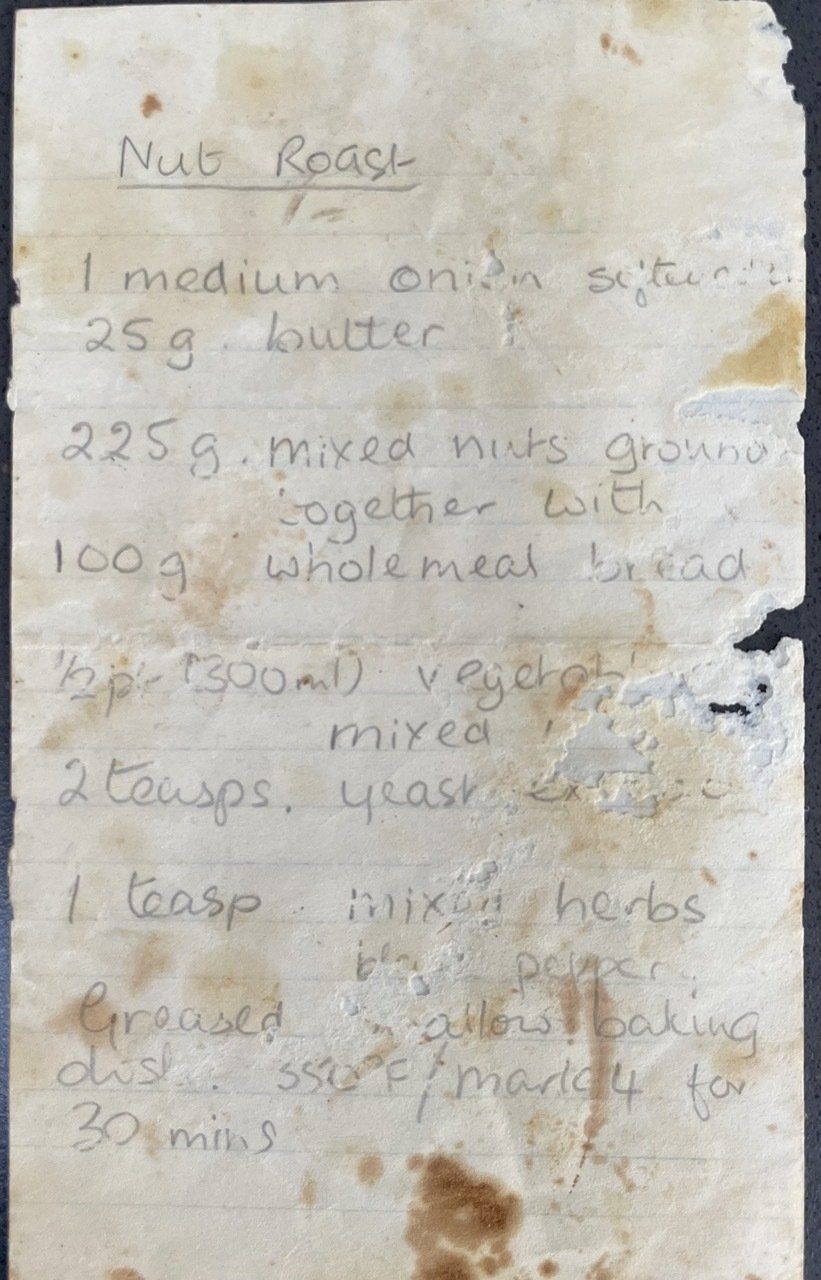 Nut Roast
1 medium onion
25g. butter
225g. mixed nuts ground
together with
100g wholemeal bread
1/2 pt (300ml)
mixed
2 teasps. yeast
1 teasp mixed herbs
pepper
Greased baking
dish. 350°F/mark 4 for
30 mins